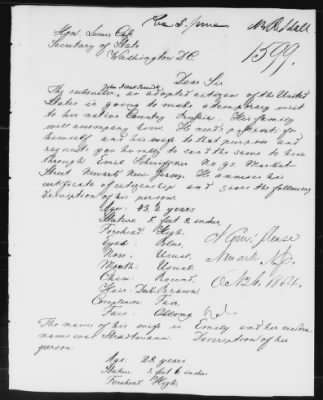 Hon. Lewis Cass
Secretary of State
Washington DC.
1599.
Dear Sir
The subscriber, an adopted citizen of the United
States is going to make a temporary visit
to his native Country Prussia. His family
will accompany him. He needs passports for
himself and his wife to that purpose and
requests you humbly to send the same to him
through Emil Schniffner No 93 Market
Street Newark New Jersey. He annexes his
certificate of citizenship and gives the following
description of his person:
Age: 43 1/2 years
Stature 5 feet 8 inches
Forehead: High.
Eyes: Blue.
Nose: Usual.
Mouth: Usual.
Chin: Round.
Hair: Dark Brown
Complexion Fair
Face: Oblong
Newark, N.J.
The name of his wife is Emily and her maiden
name was Description of her
person
Age 28 years
Stature 5 feet 6 inches
Forehead High